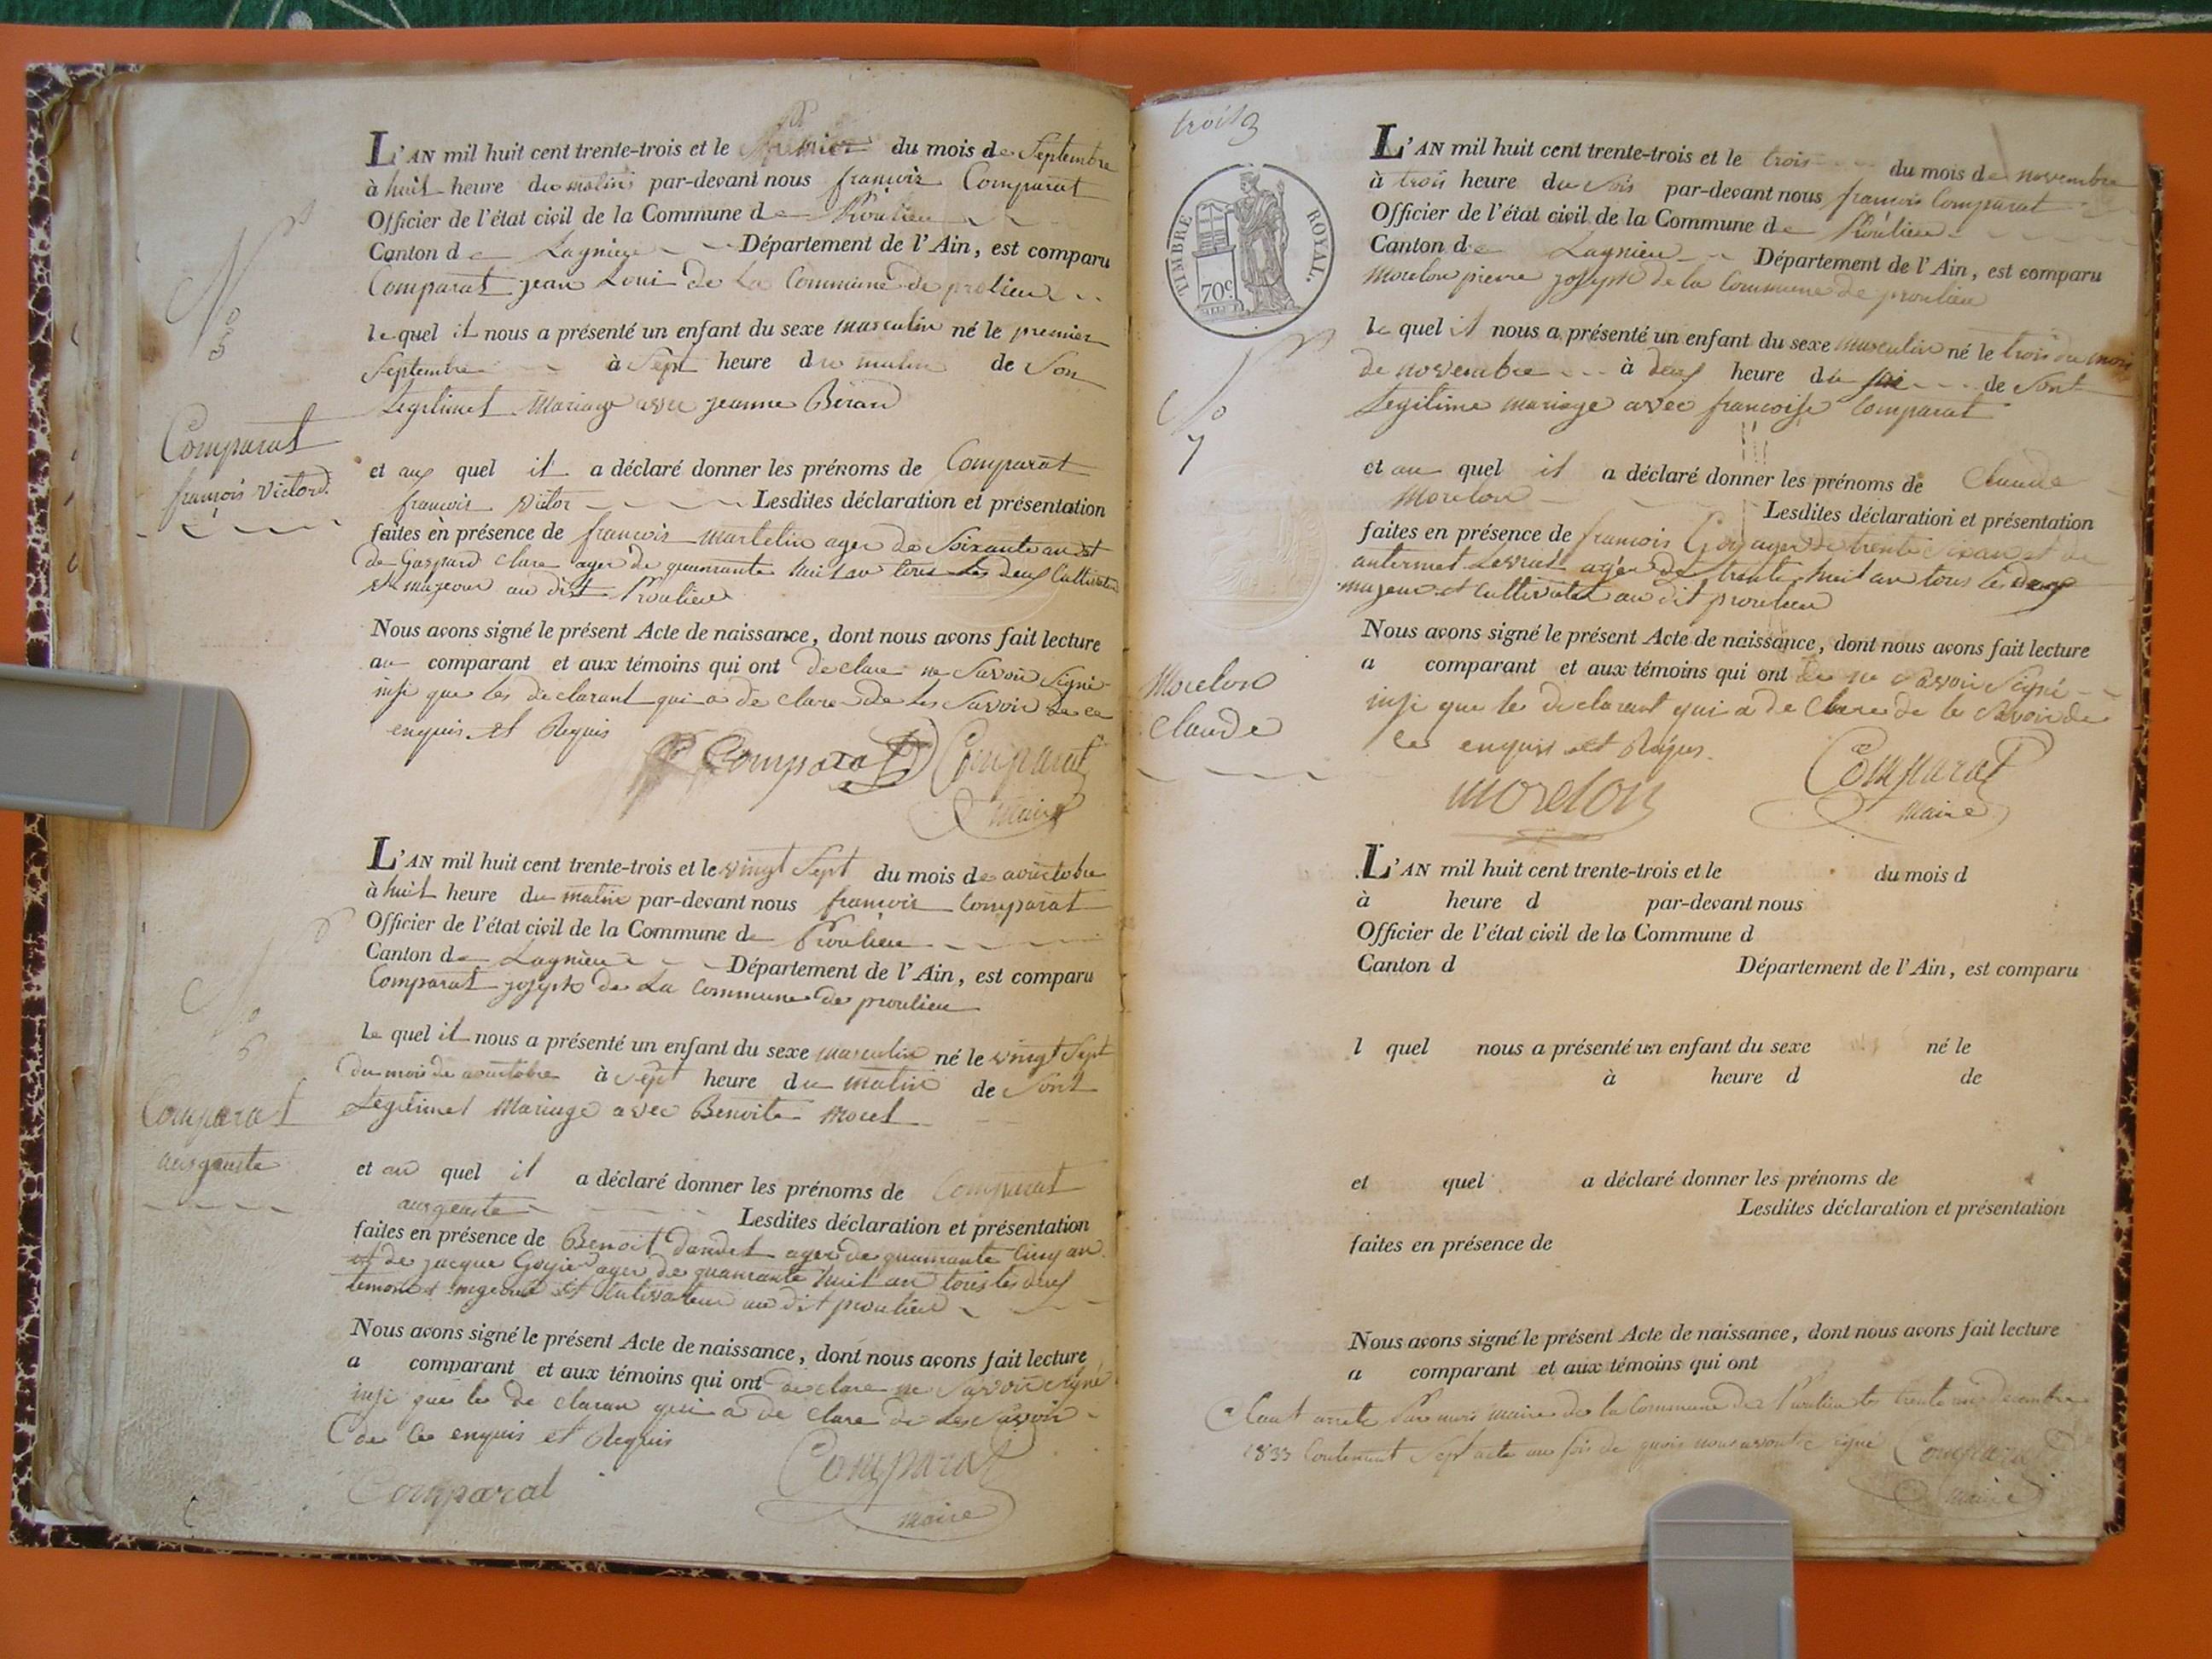 L'AN mil huit cent trente-trois et le premier du mois de Septembre
à huit heure du matin par-devant nous francois Comparat
Officier de l'état civil de la Commune de Proulieu
Canton de Lagnieu Département de l'Ain, est comparu
Comparat jean Loui de La Commune de prolieu
le quel il nous a présenté un enfant du sexe masculin né le premier
Septembre à Sept heure du matin de Son
Legitimet Mariage avec jeanne Beraud
N° 5
Comparat
francois Victord
et auq quel il a déclaré donner les prénoms de Comparat
francois Victor Lesdites déclaration et présentation
faites en présence de francois Martelin ager de Soixante an et
de Gaspard Clare ager de quaurante huit an tous Les deux Cultivateur
et majeour au dit Proulieu
Nous avons signé le présent Acte de naissance, dont nous avons fait lecture
au comparant et aux témoins qui ont de clare ne Savoir Signé
insi que les de clarant qui a de clare de les Savoir de ce
enquis et Requis
Comparat Comparat
Maire
L'AN mil huit cent trente-trois et le vingt Sept du mois de aouctobre
à huit heure du matin par-devant nous francois Comparat
Officier de l'état civil de la Commune de Proulieu
Canton de Lagnieu Département de l'Ain, est comparu
Comparat joseph de La Commune de proulieu
N° 6
le quel il nous a présenté un enfant du sexe masculin né le vingt Sept
du mois de aouctobre à Sept heure du matin de Sont
Legitimet Mariage avec Benoite Moret
Comparat
augeuste
et au quel il a déclaré donner les prénoms de Comparat
augeuste Lesdites déclaration et présentation
faites en présence de Benoit dandet ager de quaurante Cinq an
et de jacque ager de quaurante huit an tous les deux
temoint majeur et Cultivateur au dit proulieu
Nous avons signé le présent Acte de naissance, dont nous avons fait lecture
a comparant et aux témoins qui ont de clare ne Savoir signé
insi que les de claran qui a de clare de Les Savoir
de ce enquis et Requis
Comparat Comparat
maire
trois 3
TIMBRE ROYAL.
70c
L'AN mil huit cent trente-trois et le trois du mois de novembre
à trois heure du Soir par-devant nous francois Comparat
Officier de l'état civil de la Commune de Proulieu
Canton de Lagnieu Département de l'Ain, est comparu
Morelon pierre joseph de la Commune de proulieu
le quel il nous a présenté un enfant du sexe masculin né le trois du mois
de novembre à deux heure du soir de Sont
Legitime mariage avec francoise Comparat
N° 7
et au quel il a déclaré donner les prénoms de Claude
Morelon Lesdites déclaration et présentation
faites en présence de francois Goy ager de trente Six an et de
ager de trente huit an tous les deux
majeur et Cultivateur au dit proulieu
Morelon
Claude
Nous avons signé le présent Acte de naissance, dont nous avons fait lecture
a comparant et aux témoins qui ont ne Savoir Signé
insi que le de clarant qui a de clare de le Savoir de
ce enquis et Requis.
morelon Comparat
maire
L'AN mil huit cent trente-trois et le du mois d
à heure d par-devant nous
Officier de l'état civil de la Commune d
Canton d Département de l'Ain, est comparu
l quel nous a présenté un enfant du sexe né le
à heure d de
et quel a déclaré donner les prénoms de
Lesdites déclaration et présentation
faites en présence de
Nous avons signé le présent Acte de naissance, dont nous avons fait lecture
a comparant et aux témoins qui ont
arrete Par mois maire de la Commune de Proulieu le trente un decembre
1833 Contenant Sept acte au fois de quois nous avont Signé Comparat
maire